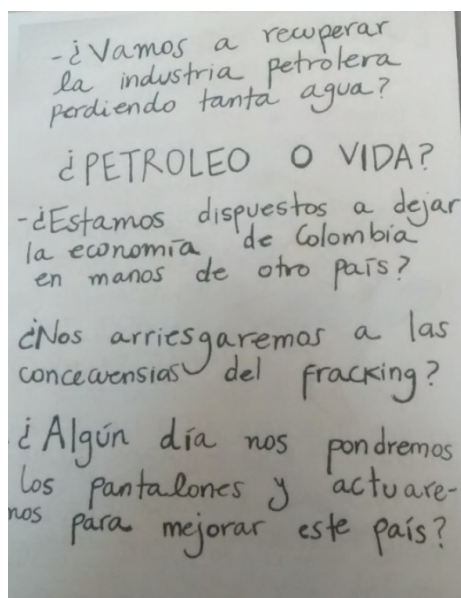 -¿Vamos a recuperar
la industria petrolera
perdiendo tanta agua?
¿PETROLEO O VIDA?
-¿Estamos dispuestos a dejar
la economía de Colombia
en manos de otro país?
¿Nos arriesgaremos a las
concecuensias del fracking?
¿Algún día nos pondremos
los pantalones y actuare-
mos para mejorar este país?